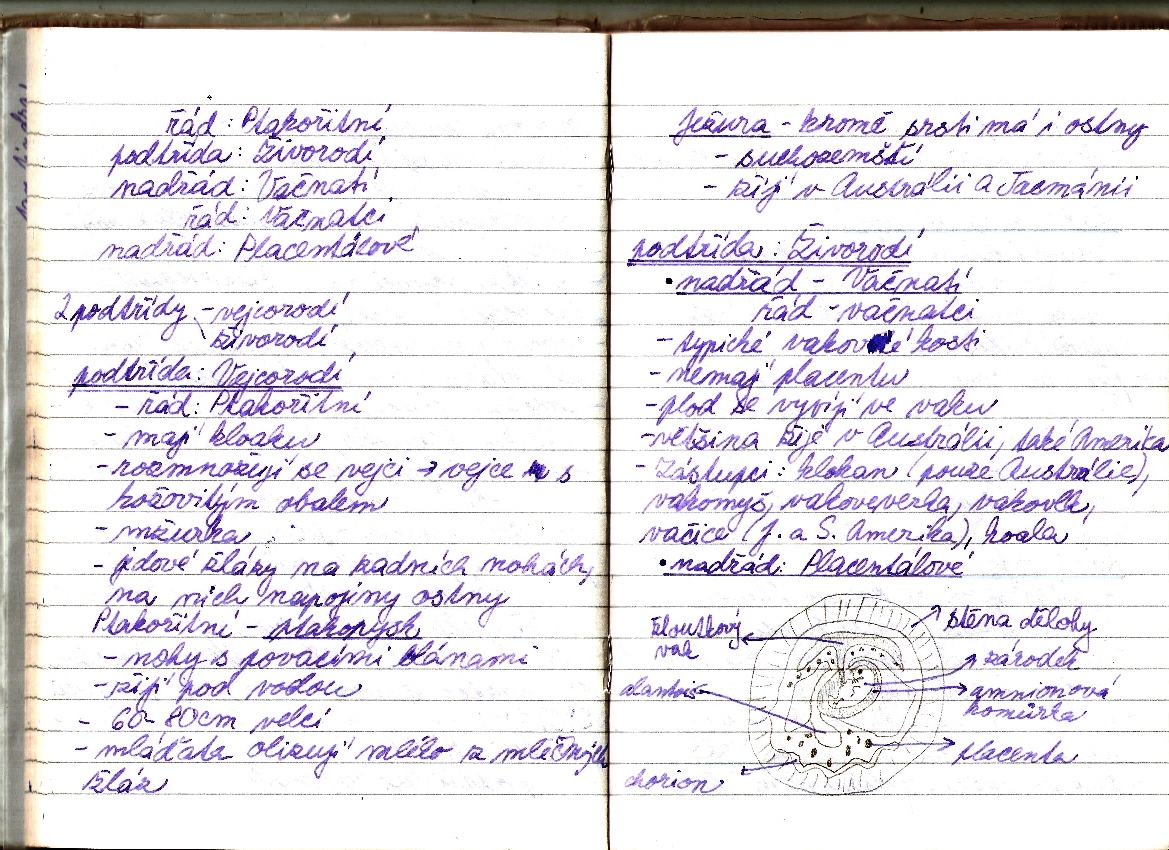 řád: Ptakořitní
podtřída: Živorodí
nadřád: Vačnatí
řád: Vačnatci
nadřád: Placentálové
2 podtřídy - vejcorodí
živorodí
podtřída: Vejcorodí
- řád: Ptakořitní
- mají kloaku
- rozmnožují se vejci → vejce s
kožovitým obalem
- mžurka
- jedové žlázy na zadních nohách,
na nich napojeny ostny
Ptakořitní - ptakopysk
- nohy s plovacími blánami
- žijí pod vodou
- 60-80cm velcí
- mláďata olizují mléko z mléčných
žláz
Ježura - kromě srsti má i ostny
- suchozemští
- žijí v Austrálii a Tasmánii
podtřída: Živorodí
• nadřád - Vačnatí
řád - vačnatci
- typické vakovité kosti
- nemají placentu
- plod se vyvíjí ve vaku
- většina žije v Austrálii, také Amerika
- Zástupci: klokan (pouze Austrálie),
vakomyš, vakoveverka, vakovlk,
vačice (J. a S. Amerika), koala
• nadřád: Placentálové
žloutkový
vak
stěna dělohy
zárodek
alantois
amnionová
komůrka
placenta
chorion